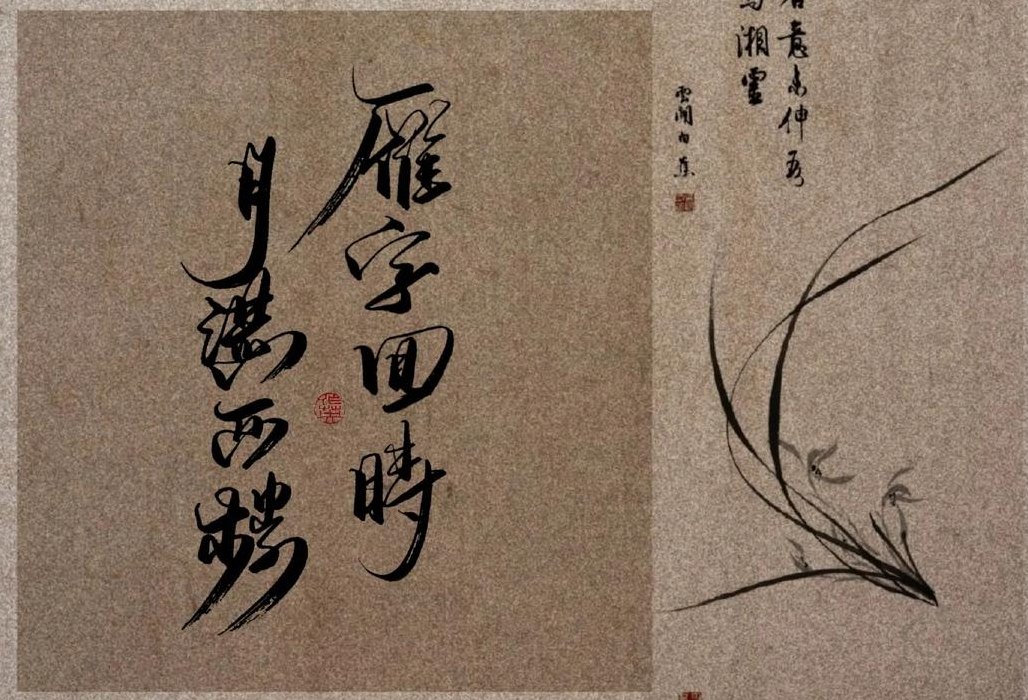 雁字回時
月滿西樓
意
伸
湘靈
雲間白蕉